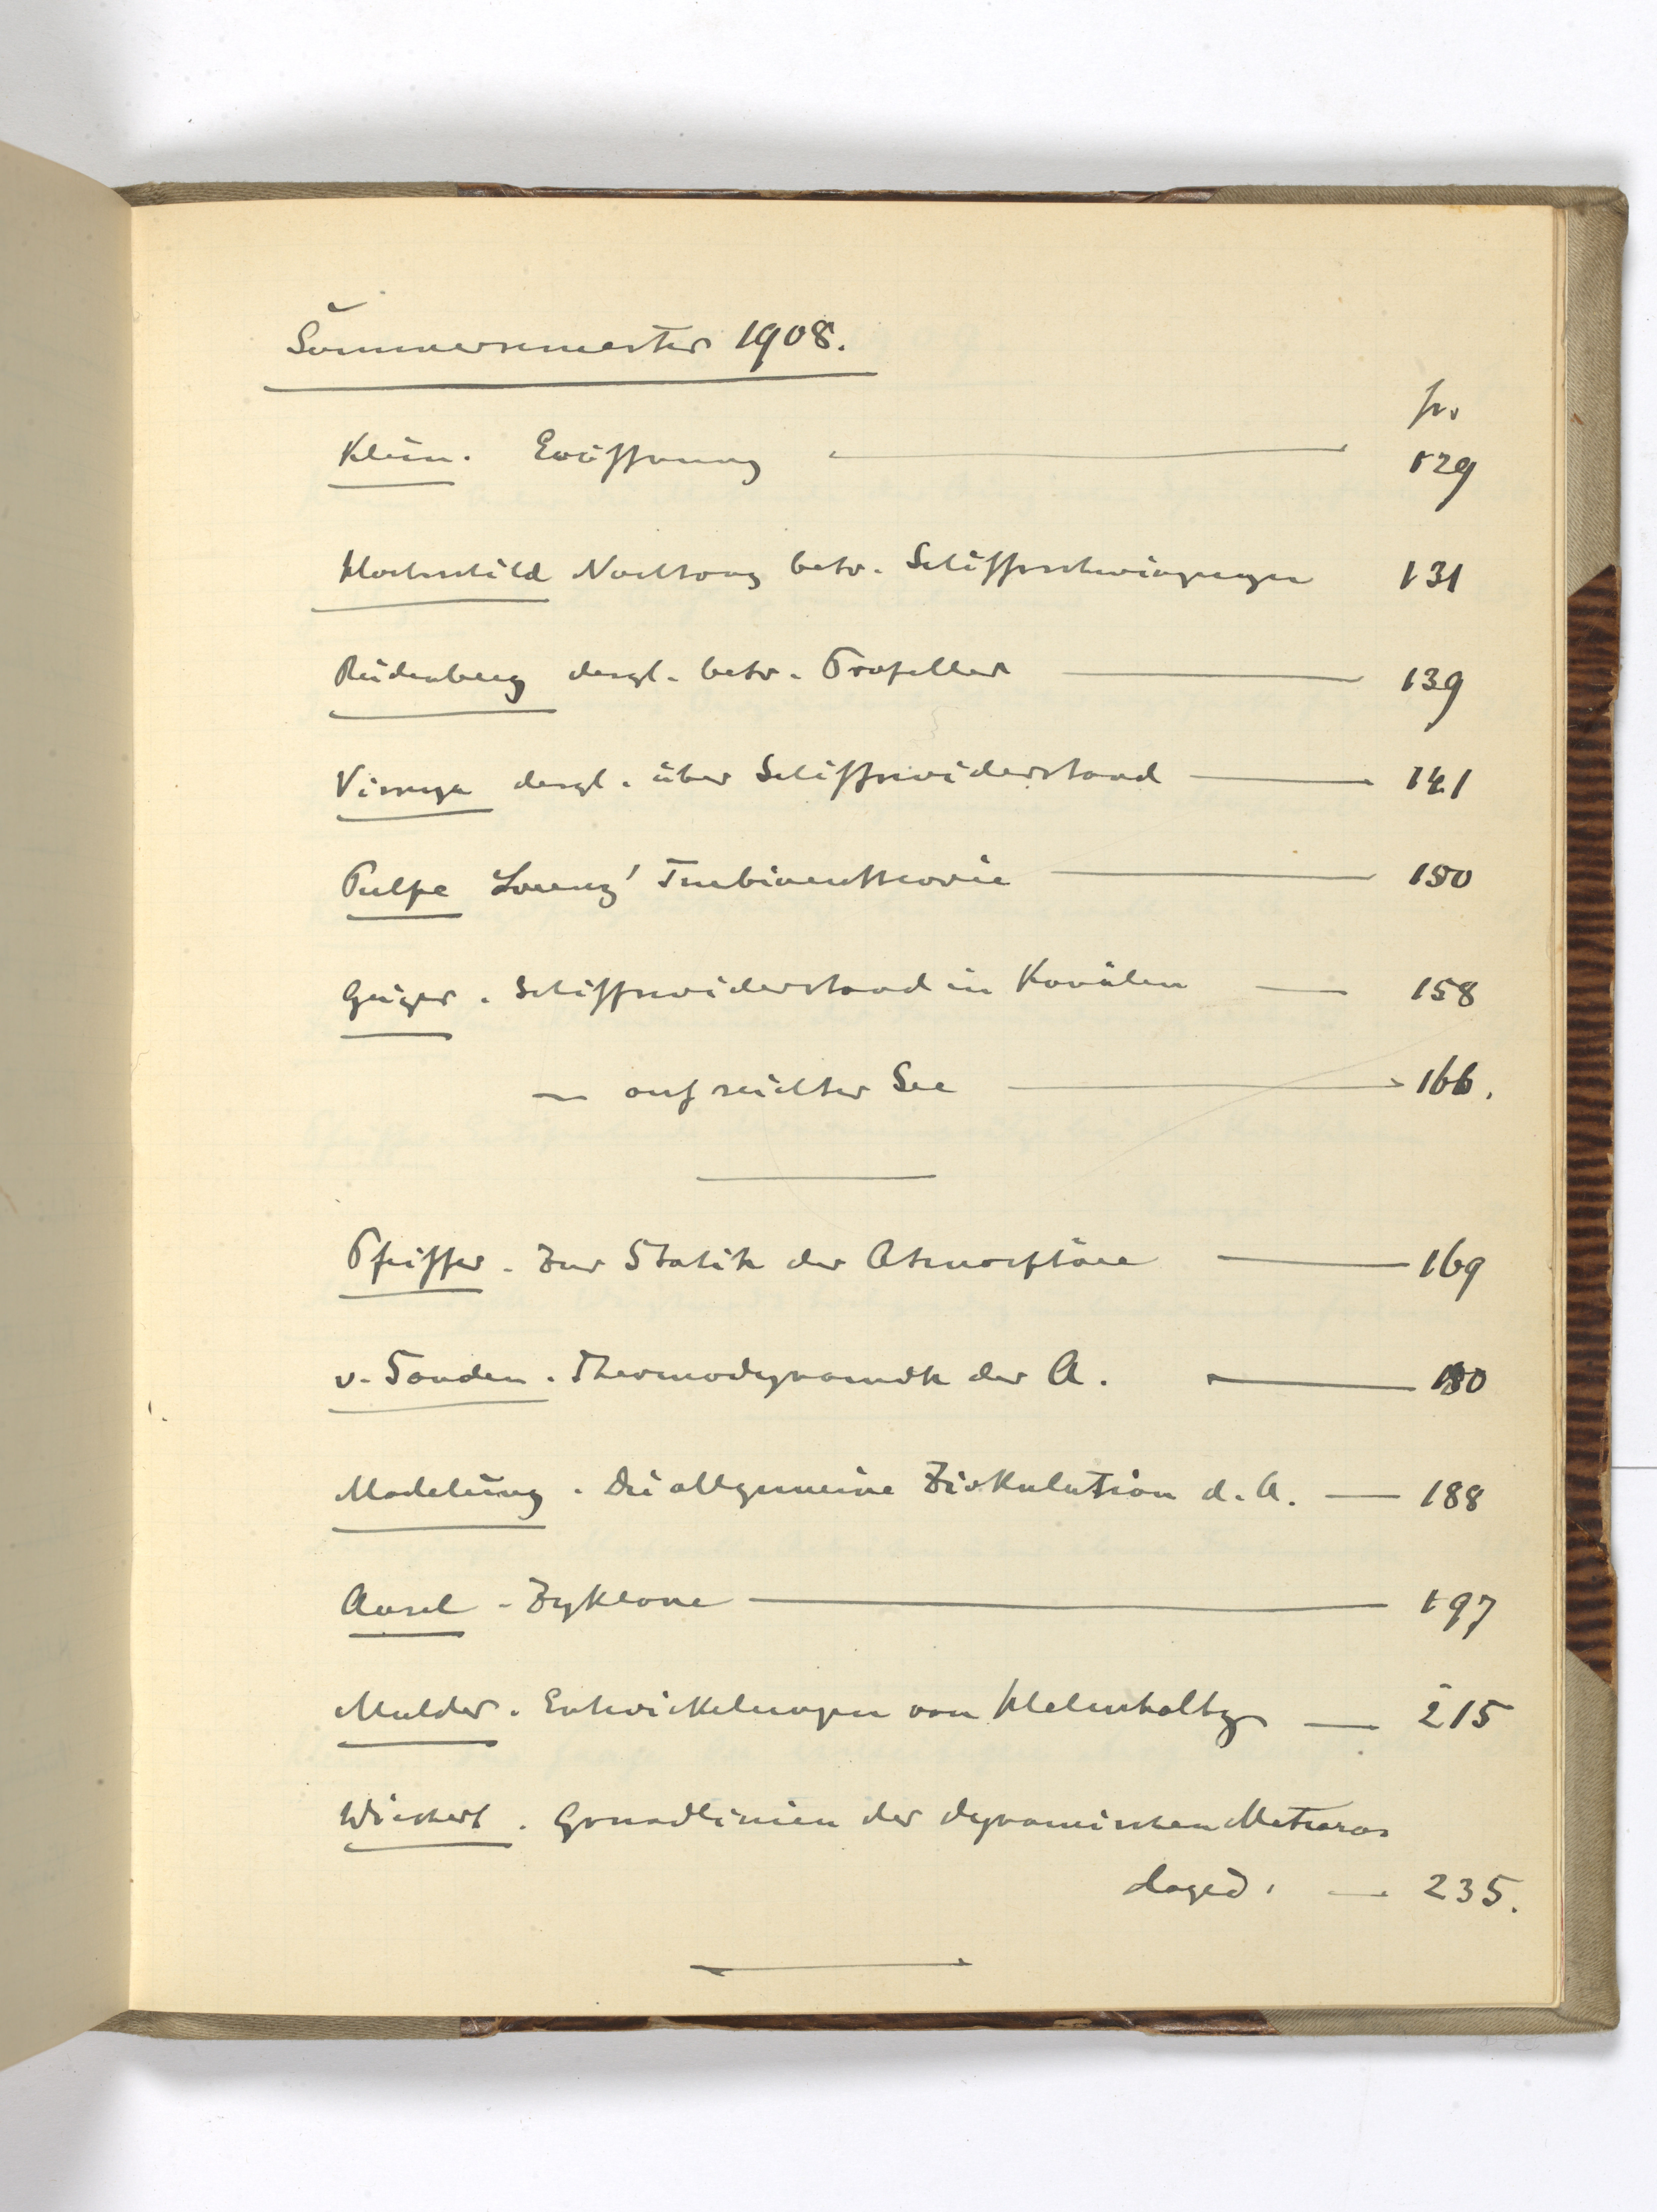 Sommersemester 1908.
p.
Klein. Eröffnung 129
Hochschild Nachtrag betr. Schiffsschwingungen 131
Rüdenberg desgl. betr. Propeller 139
desgl. über Schiffswiderstand 141
Pulpe Lorenz' Turbinentheorie 150
Geiger. Schiffswiderstand in Kanälen 158
~ auf seichter See 166.
Pfeiffer. Zur Statik der Atmosphäre 169
v. Sanden. Thermodynamik der A. 180
Madelung. Die allgemeine Zirkulation d. A. 188
Ansel - Zyklone 197
Mulder. Entwickelungen von Helmholtz 215
Wiechert. Grundlinien der dynamischen Meteoro-
logie. 235.